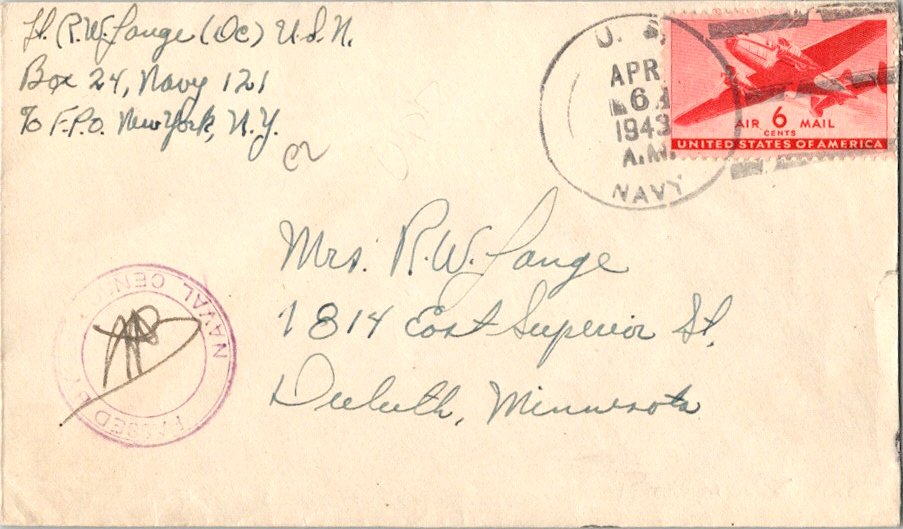 Lt. R.W. Lange (Dc) U.S.N.
Box 24, Navy 121
℅ F.P.O. New York, N.Y.
U. S.
APR
6
1943
A.M.
NAVY
AIR 6 MAIL
CENTS
UNITED STATES OF AMERICA
Mrs. R.W. Lange
1814 East Superior St.
Duluth, Minnesota
PASSED BY
NAVAL CEN